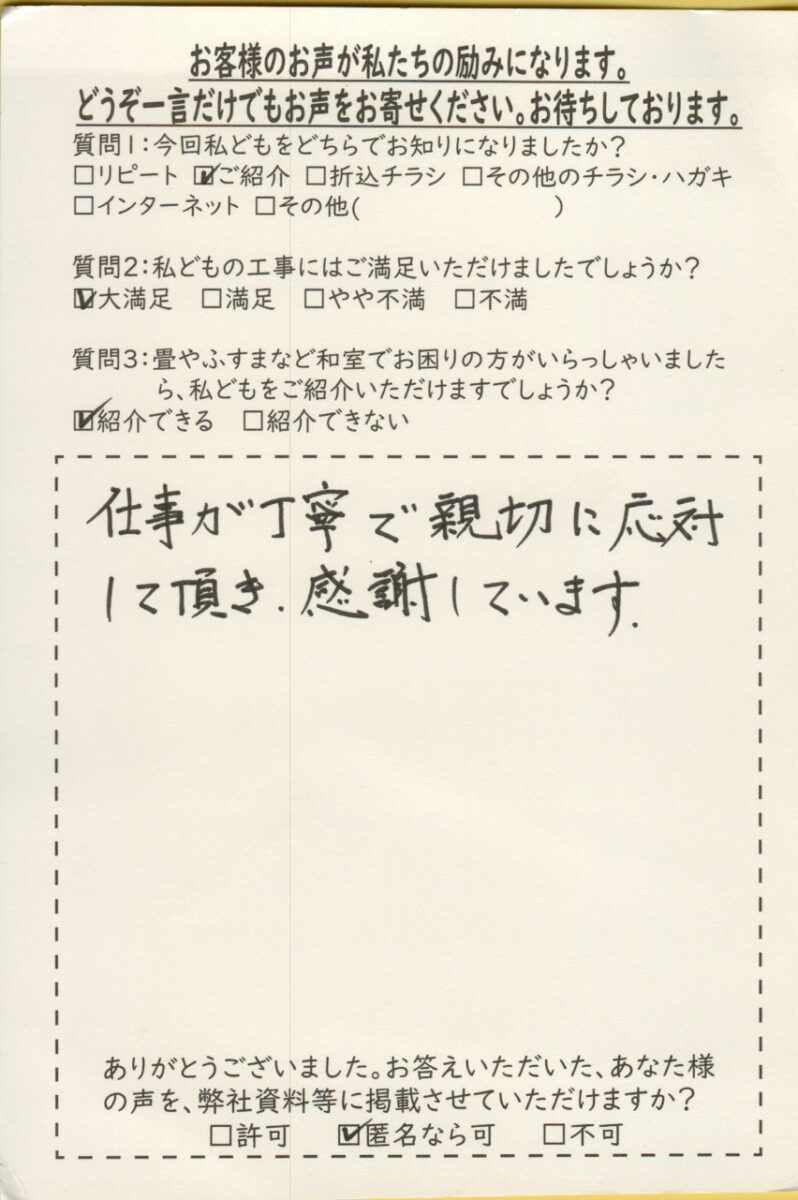 お客様のお声が私たちの励みになります。
どうぞ一言だけでもお声をお寄せください。お待ちしております。
質問1：今回私どもをどちらでお知りになりましたか？
□リピート ☑ご紹介 □折込チラシ □その他のチラシ・ハガキ
□インターネット □その他(　　　　　　　　)
質問2：私どもの工事にはご満足いただけましたでしょうか？
☑大満足 □満足 □やや不満 □不満
質問3：畳やふすまなど和室でお困りの方がいらっしゃいました
ら、私どもをご紹介いただけますでしょうか？
☑紹介できる □紹介できない
仕事が丁寧で親切に応対
して頂き.感謝しています.
ありがとうございました。お答えいただいた、あなた様
の声を、弊社資料等に掲載させていただけますか？
□許可 ☑匿名なら可 □不可